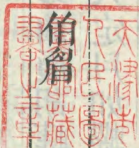 伯眉
天津市
人民圖
書館藏
書之章